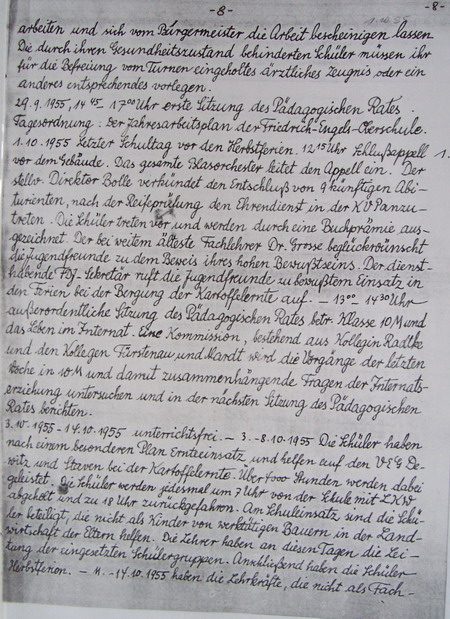 - 8 -
- 8 -
arbeiten und sich vom Bürgermeister die Arbeit bescheinigen lassen.
Die durch ihren Gesundheitszustand behinderten Schüler müssen ihr
für die Befreiung vom Turnen eingeholtes ärztliches Zeugnis oder ein
anderes entsprechendes vorlegen.
29.9.1955, 14 45 - 17 00 Uhr erste Sitzung des Pädagogischen Rates.
Tagesordnung: Der Jahresarbeitsplan der Friedrich-Engels-Oberschule.
1.10.1955 Letzter Schultag vor den Herbstferien. 12 15 Uhr Schlußappell 1.
vor dem Gebäude. Das gesamte Blasorchester leitet den Appell ein. Der
stellv. Direktor Bolle verkündet den Entschluß von 9 künftigen Abi-
turienten, nach der Reifeprüfung den Ehrendienst in der KVP anzu-
treten. Die Schüler treten vor und werden durch eine Buchprämie aus-
gezeichnet. Der bei weitem älteste Fachlehrer Dr. Grosse beglückwünscht
die Jugendfreunde zu dem Beweis ihres hohen Bewußtseins. Der dienst-
habende FDJ-Sekretär ruft die Jugendfreunde zu bewußtem Einsatz in
den Ferien bei der Bergung der Kartoffelernte auf. - 13 00 - 14 30 Uhr
außerordentliche Sitzung des Pädagogischen Rates betr. Klasse 10 M und
das Leben im Internat. Eine Kommission, bestehend aus Kollegin Radtke
und den Kollegen Fürstenau und Mardt wird die Vorgänge der letzten
Woche in 10 M und damit zusammenhängende Fragen der Internats-
erziehung untersuchen und in der nächsten Sitzung des Pädagogischen
Rates berichten.
3.10.1955 - 14.10.1955 unterrichtsfrei. - 3. - 8.10.1955 Die Schüler haben
nach einem besonderen Plan Ernteeinsatz und helfen auf den VEG De-
witz und Staven bei der Kartoffelernte. Über 4000 Stunden werden dabei
geleistet. Die Schüler werden jedesmal um 7 Uhr von der Schule mit LKW
abgeholt und zu 18 Uhr zurückgefahren. Am Schuleinsatz sind die Schü-
ler beteiligt, die nicht als Kinder von werktätigen Bauern in der Land-
wirtschaft der Eltern helfen. Die Lehrer haben an diesen Tagen die Lei-
tung der eingesetzten Schülergruppen. Anschließend haben die Schüler
Herbstferien. - 11. - 14.10.1955 haben die Lehrkräfte, die nicht als Fach-